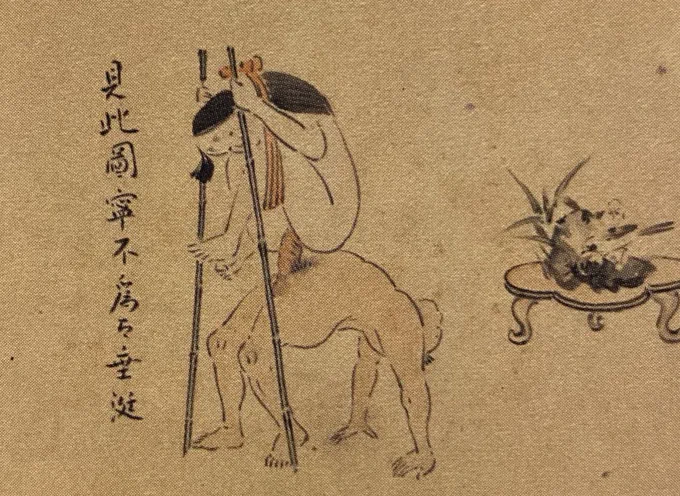 見此圖寧不爲之垂涎